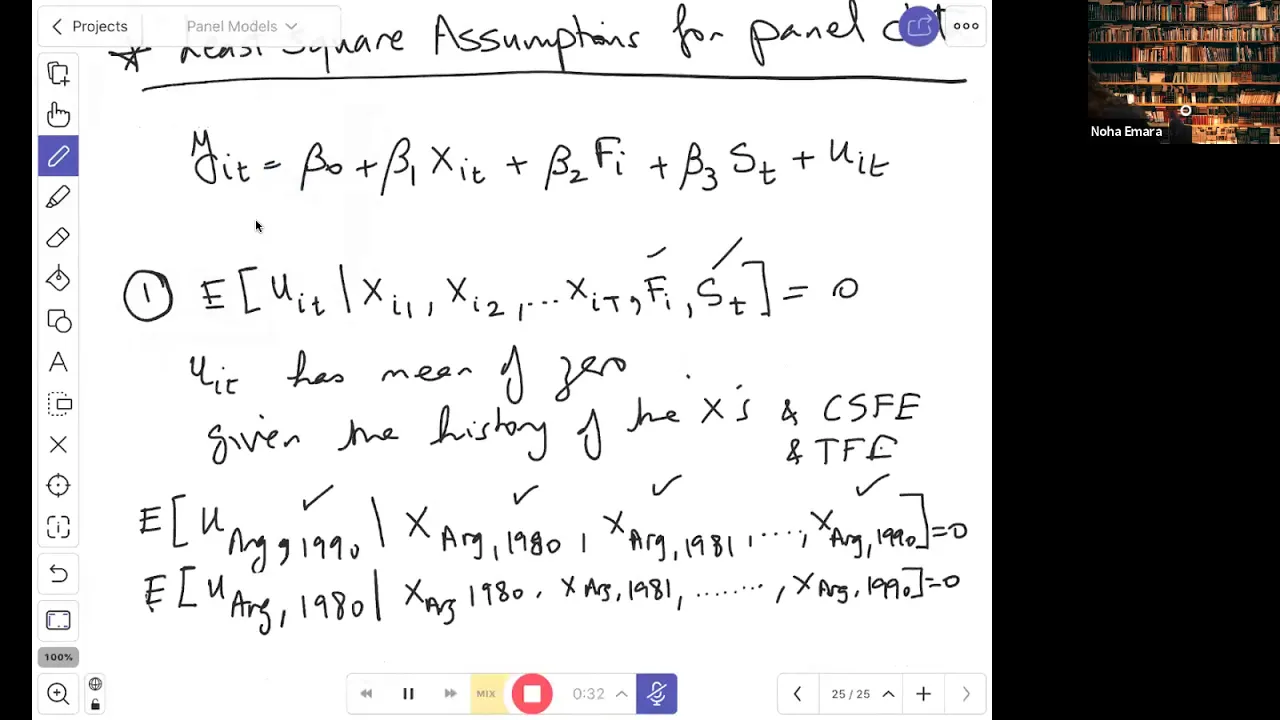 Projects
Panel Models
* Least Square Assumptions for panel dat
Yit = β0 + β1 Xit + β2 Fi + β3 St + uit
① E[uit | Xi1, Xi2, ... XiT, Fi, St] = 0
uit has mean of zero
given the history of the X's & CSFE
& TFE
E[u Arg, 1990 | X Arg, 1980, X Arg, 1981, ...., X Arg, 1990] = 0
E[u Arg, 1980 | X Arg 1980. X Arg, 1981, ......., X Arg. 1990] = 0
A
100%
MIX
0:32
25 / 25
Noha Emara